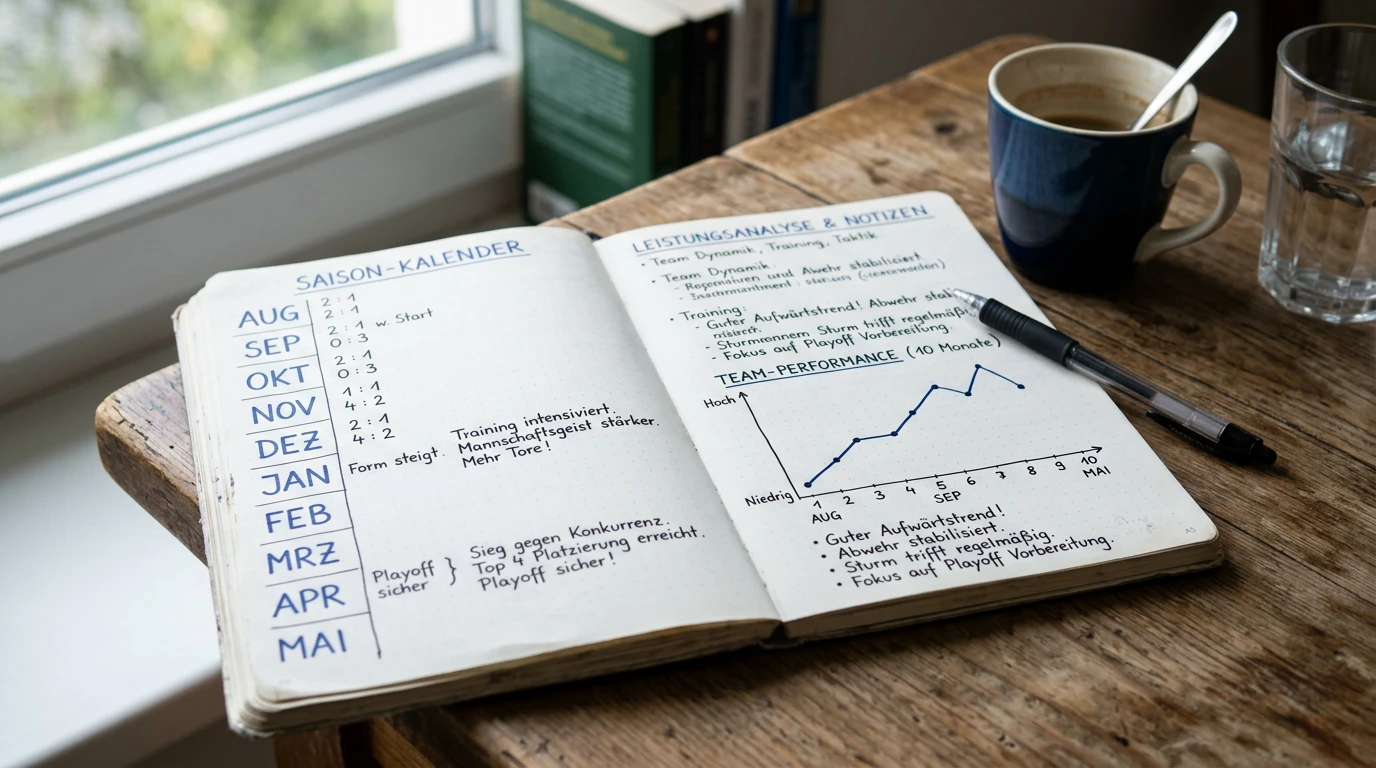 SAISON-KALENDER
AUG
SEP
OKT
NOV
DEZ
JAN
FEB
MRZ
APR
MAI
2:1
2:1
2:1 w. Start
0:3
2:1
0:3
1:1
4:2
2:1
4:2
Form steigt.
Training intensiviert.
Mannschaftsgeist stärker.
Mehr Tore!
Playoff
sicher
Sieg gegen Konkurrenz.
Top 4 Platzierung erreicht.
Playoff sicher!
LEISTUNGSANALYSE & NOTIZEN
• Team Dynamik, Training, Taktik
• Team Dynamik:
- und Awehr stabilisiert
• Training:
- Guter Aufwärtstrend! Abwehr
- Sturm trifft regelmäßig.
- Fokus auf Playoff Vorbereitung.
TEAM-PERFORMANCE (10 Monate)
Hoch
Niedrig
1 2 3 4 5 6 7 8 9 10
AUG SEP MAI
• Guter Aufwärtstrend!
• Abwehr stabilisiert.
• Sturm trifft regelmäßig.
• Fokus auf Playoff Vorbereitung.